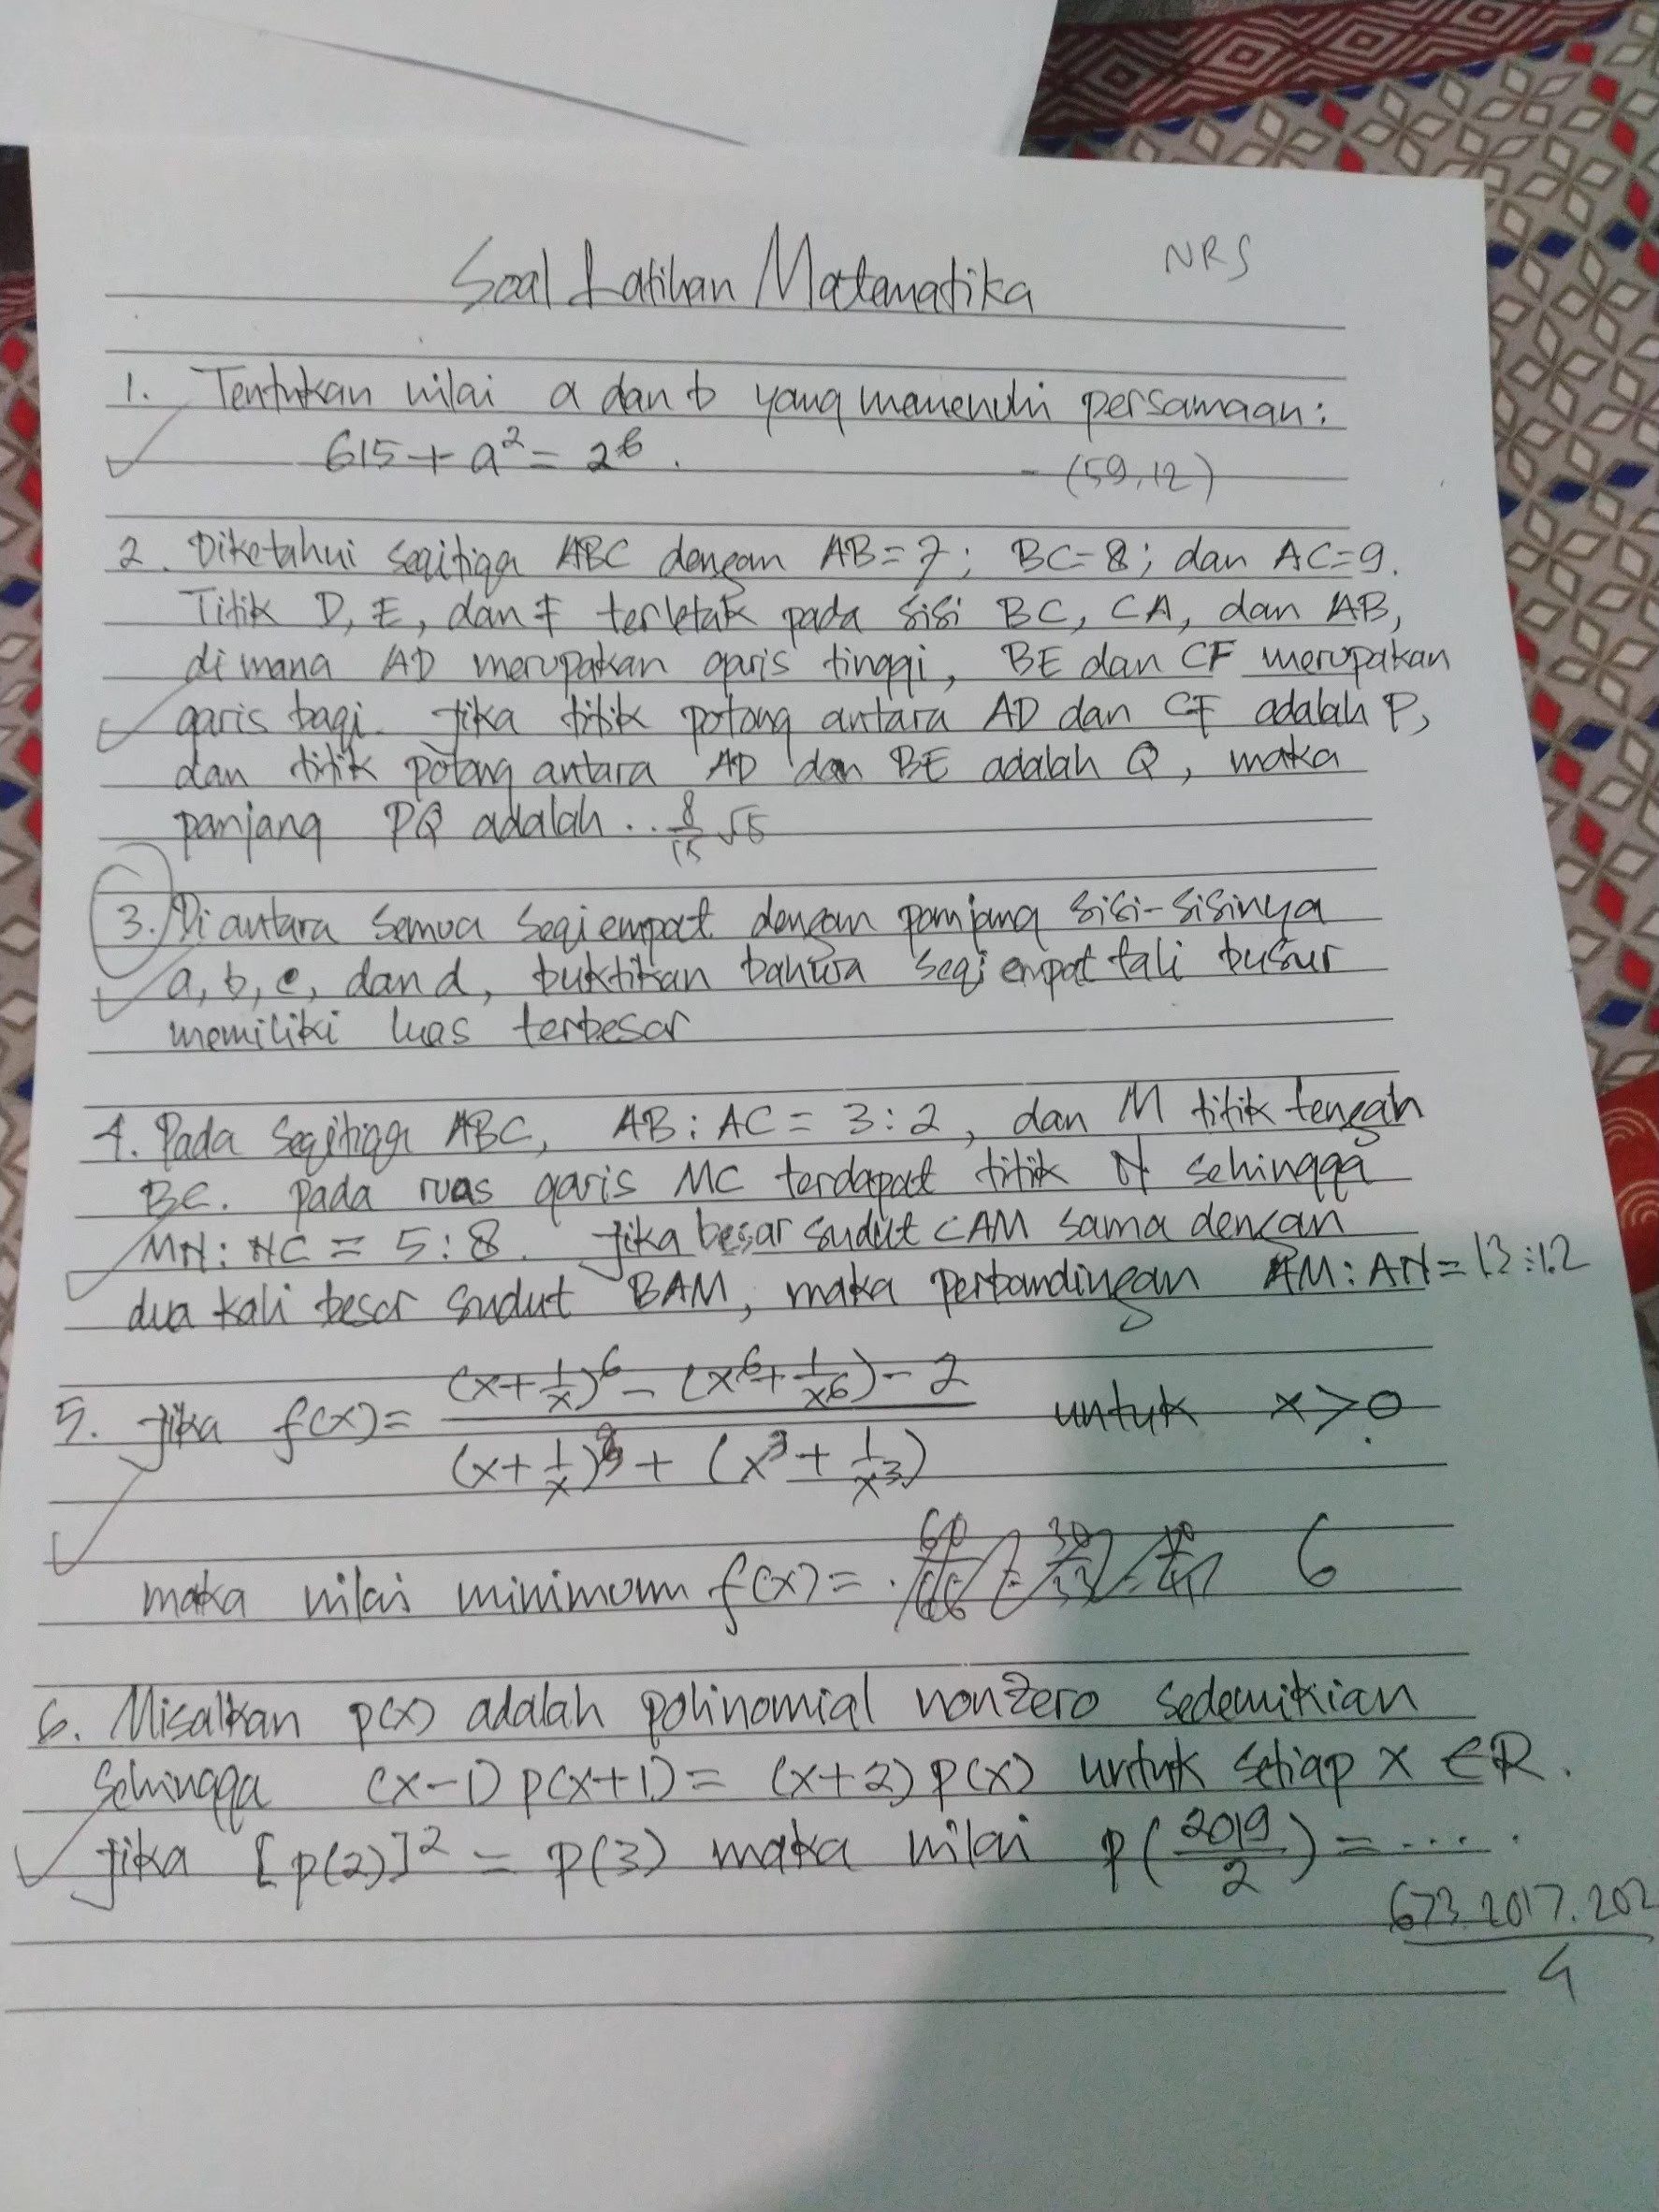 Soal Latihan Matematika NRS
1. Tentukan nilai a dan b yang memenuhi persamaan:
615 + a² = 2ᵇ. - (59,12)
2. Diketahui segitiga ABC dengan AB=7; BC=8; dan AC=9.
Titik D, E, dan F terletak pada sisi BC, CA, dan AB,
dimana AD merupakan garis tinggi, BE dan CF merupakan
garis bagi. Jika titik potong antara AD dan CF adalah P,
dan titik potong antara AD dan BE adalah Q, maka
panjang PQ adalah .. 8/15 √5
3. Di antara semua segiempat dengan panjang sisi-sisinya
a, b, c, dan d, buktikan bahwa segiempat tali busur
memiliki luas terbesar
4. Pada segitiga ABC, AB : AC = 3 : 2, dan M titik tengah
BC. pada ruas garis MC terdapat titik N sehingga
MN : NC = 5 : 8. Jika besar sudut CAM sama dengan
dua kali besar sudut BAM, maka perbandingan AM : AN = 13 : 12
5. Jika f(x) = ((x + 1/x)⁶ - (x⁶ + 1/x⁶) - 2) / ((x + 1/x)³ + (x³ + 1/x³)) untuk x > 0.
maka nilai minimum f(x) = . 6
6. Misalkan p(x) adalah polinomial nonzero sedemikian
sehingga (x-1) p(x+1) = (x+2) p(x) untuk setiap x ∈ R.
Jika [p(2)]² = p(3) maka nilai p(2019/2) = ....
673.2017.202 / 4